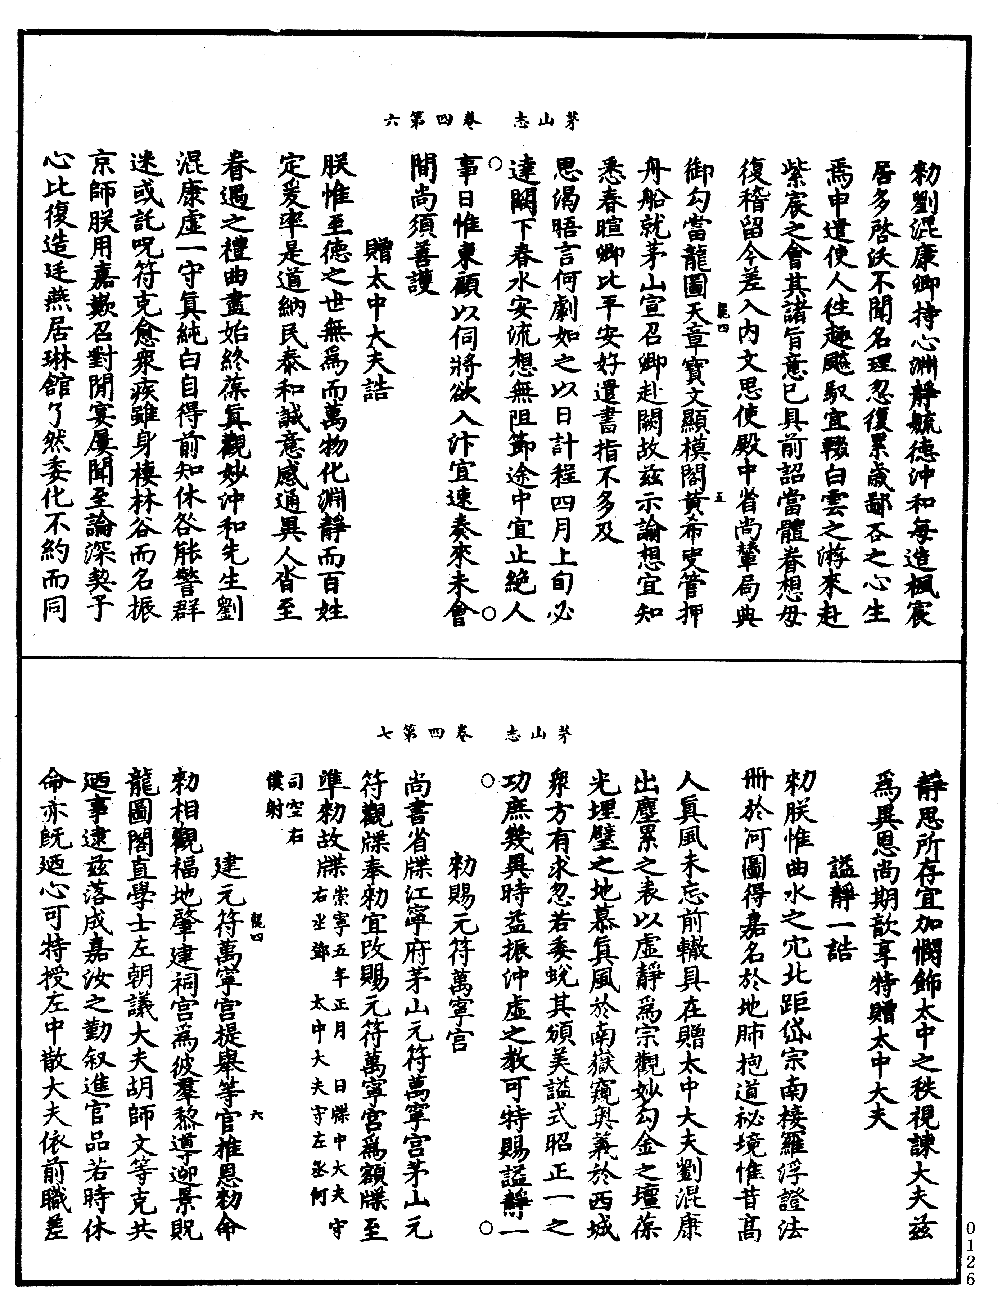 茅山志　卷四第六
勑劉混康卿持心淵靜毓德沖和每造楓宸
居多啓沃不聞名理忽復累歲鄙吝之心生
焉申遣使人徃趣飈馭宜輟白雲之游來赴
紫宸之會其諸旨意已具前詔當體眷想毋
復稽留今差入内文思使殿中省尚輦局典
御勾當龍圖天章寶文顯模閣黄希叟管押
舟船就茅山宣召卿赴闕故兹示諭想宜知
悉春暄卿比平安好遣書指不多及
思渴晤言何劇如之以日計程四月上旬必
達闕下春水安流想無阻節途中宜止絶人
事日惟東顧以伺將欲入汴宜速奏來未會
間尚須善護
贈太中大夫誥
朕惟至德之世無爲而萬物化淵靜而百姓
定爰率是道納民泰和誠意感通異人沓至
眷遇之禮曲盡始終葆真觀妙沖和先生劉
混康虚一守真純白自得前知休咎能警群
迷或託呪符克愈衆疾雖身棲林谷而名振
京師朕用嘉歎召對閒宴屢聞至論深契予
心比復造廷燕居琳館了然委化不約而同
龍四
五
茅山志　卷四第七
靜思所存宜加憫飾太中之秩視諫大夫兹
爲異恩尚期歆享特贈太中大夫
謚靜一誥
勑朕惟曲水之穴北距岱宗南接羅浮證法
册於河圖得嘉名於地肺抱道祕境惟昔高
人真風未忘前轍具在贈太中大夫劉混康
出塵累之表以虚靜爲宗觀妙勾金之壇葆
光埋璧之地慕真風於南嶽窺奥義於西城
衆方有求忽若委蛻其頒美謚式昭正一之
功庶幾異時益振沖虚之教可特賜謚靜一
勑賜元符萬寧宫
尚書省牒江寧府茅山元符萬寧宫茅山元
符觀牒奉勑宜改賜元符萬寧宫爲額牒至
準勑故牒崇寧五年正月　日牒中大夫守
右丞鄧　太中大夫守左丞何
司空右
僕射
建元符萬寧宫提舉等官推恩勑命
勑相觀福地肇建祠宫爲彼羣黎導迎景貺
龍圖閣直學士左朝議大夫胡師文等克共
廼事逮兹落成嘉汝之勤叙進官品若時休
命亦旣廼心可特授左中散大夫依前職差
龍四
六
0126